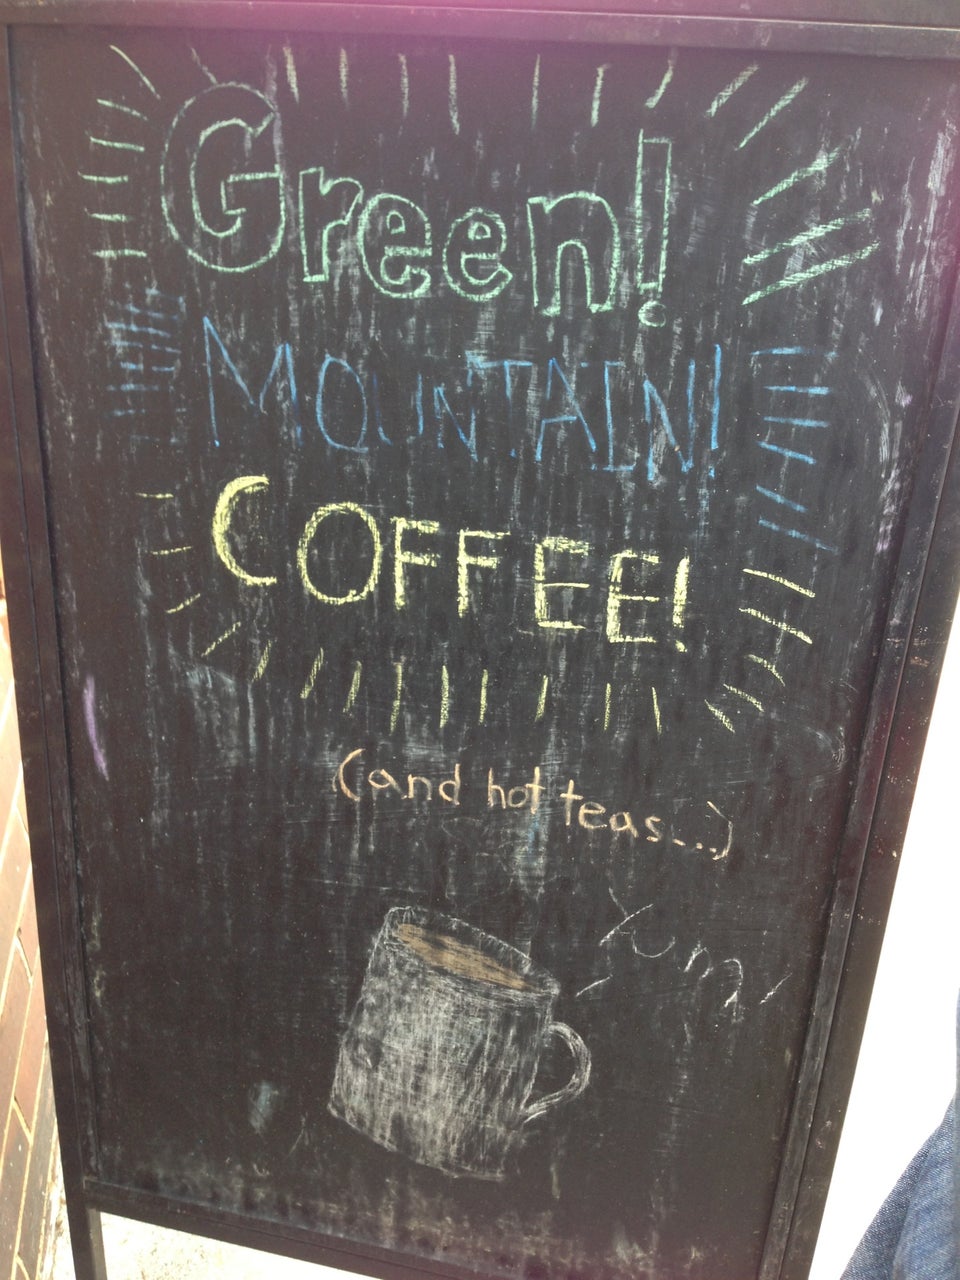 Green!
MOUNTAIN!
COFFEE!
(and hot teas...)
Yum